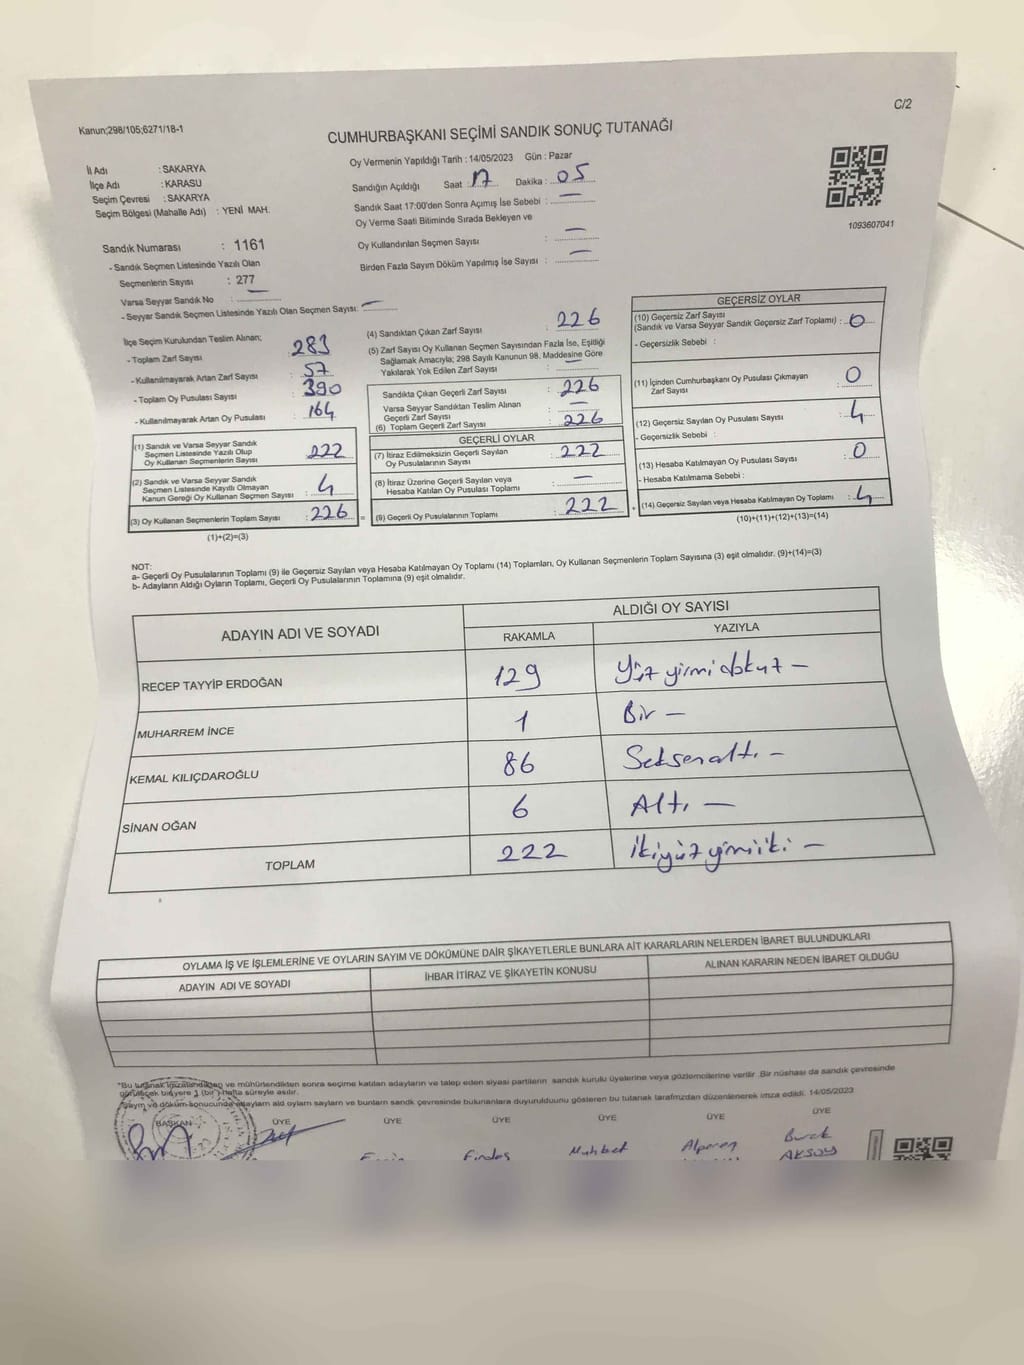 C/2
Kanun;298/105;6271/18-1
CUMHURBAŞKANI SEÇİMİ SANDIK SONUÇ TUTANAĞI
İl Adı : SAKARYA
İlçe Adı : KARASU
Seçim Çevresi : SAKARYA
Seçim Bölgesi (Mahalle Adı) : YENİ MAH.
Oy Vermenin Yapıldığı Tarih : 14/05/2023 Gün : Pazar
Sandığın Açıldığı Saat : 17 Dakika : 05
Sandık Saat 17:00'den Sonra Açımış İse Sebebi : —
Oy Verme Saati Bitiminde Sırada Bekleyen ve
Oy Kullandırılan Seçmen Sayısı : —
Birden Fazla Sayım Döküm Yapılmış İse Sayısı : —
1093607041
Sandık Numarası : 1161
- Sandık Seçmen Listesinde Yazılı Olan
Seçmenlerin Sayısı : 277
Varsa Seyyar Sandık No : —
- Seyyar Sandık Seçmen Listesinde Yazılı Olan Seçmen Sayısı: —
İlçe Seçim Kurulundan Teslim Alınan;
- Toplam Zarf Sayısı : 283
- Kullanılmayarak Artan Zarf Sayısı : 57
- Toplam Oy Pusulası Sayısı : 390
- Kullanılmayarak Artan Oy Pusulası : 164
(1) Sandık ve Varsa Seyyar Sandık
Seçmen Listesinde Yazılı Olup
Oy Kullanan Seçmenlerin Sayısı : 222
(2) Sandık ve Varsa Seyyar Sandık
Seçmen Listesinde Kayıtlı Olmayan
Kanun Gereği Oy Kullanan Seçmen Sayısı : 4
(3) Oy Kullanan Seçmenlerin Toplam Sayısı : 226 =
(1)+(2)=(3)
(4) Sandıktan Çıkan Zarf Sayısı : 226
(5) Zarf Sayısı Oy Kullanan Seçmen Sayısından Fazla İse, Eşitliği
Sağlamak Amacıyla; 298 Sayılı Kanunun 98. Maddesine Göre
Yakılarak Yok Edilen Zarf Sayısı : —
Sandıkta Çıkan Geçerli Zarf Sayısı : 226
Varsa Seyyar Sandıktan Teslim Alınan
Geçerli Zarf Sayısı : —
(6) Toplam Geçerli Zarf Sayısı : 226
GEÇERLİ OYLAR
(7) İtiraz Edilmeksizin Geçerli Sayılan
Oy Pusulalarının Sayısı : 222
(8) İtiraz Üzerine Geçerli Sayılan veya
Hesaba Katılan Oy Pusulası Toplamı : —
(9) Geçerli Oy Pusulalarının Toplamı : 222 +
GEÇERSİZ OYLAR
(10) Geçersiz Zarf Sayısı
(Sandık ve Varsa Seyyar Sandık Geçersiz Zarf Toplamı) : 0
- Geçersizlik Sebebi :
(11) İçinden Cumhurbaşkanı Oy Pusulası Çıkmayan
Zarf Sayısı : 0
(12) Geçersiz Sayılan Oy Pusulası Sayısı : 4
- Geçersizlik Sebebi :
(13) Hesaba Katılmayan Oy Pusulası Sayısı : 0
- Hesaba Katılmama Sebebi :
(14) Geçersiz Sayılan veya Hesaba Katılmayan Oy Toplamı : 4
(10)+(11)+(12)+(13)=(14)
NOT:
a- Geçerli Oy Pusulalarının Toplamı (9) ile Geçersiz Sayılan veya Hesaba Katılmayan Oy Toplamı (14) Toplamları, Oy Kullanan Seçmenlerin Toplam Sayısına (3) eşit olmalıdır. (9)+(14)=(3)
b- Adayların Aldığı Oyların Toplamı, Geçerli Oy Pusulalarının Toplamına (9) eşit olmalıdır.
ADAYIN ADI VE SOYADI
ALDIĞI OY SAYISI
RAKAMLA YAZIYLA
RECEP TAYYİP ERDOĞAN 129 Yüz yirmi dokuz —
MUHARREM İNCE 1 Bir —
KEMAL KILIÇDAROĞLU 86 Seksenaltı —
SİNAN OĞAN 6 Altı —
TOPLAM 222 İkiyüz yirmiiki —
OYLAMA İŞ VE İŞLEMLERİNE VE OYLARIN SAYIM VE DÖKÜMÜNE DAİR ŞİKAYETLERLE BUNLARA AİT KARARLARIN NELERDEN İBARET BULUNDUKLARI
ADAYIN ADI VE SOYADI İHBAR İTİRAZ VE ŞİKAYETİN KONUSU ALINAN KARARIN NEDEN İBARET OLDUĞU
*Bu tutanak imzalandıktan ve mühürlendikten sonra seçime katılan adayların ve talep eden siyasi partilerin sandık kurulu üyelerine veya gözlemcilerine verilir. Bir nüshası da sandık çevresinde
görülecek bir yere 1 (bir) Hafta süreyle asılır.
ve döküm sonucunda adayların ald oyların sayların ve bunların sandık çevresinde bulunanlara duyurulduunu gösteren bu tutanak tarafmızdan düzenlenerek imza edildi. 14/05/2023
BAŞKAN ÜYE ÜYE ÜYE ÜYE ÜYE ÜYE
Findos Muhbet Alperen Burak
AKSOY